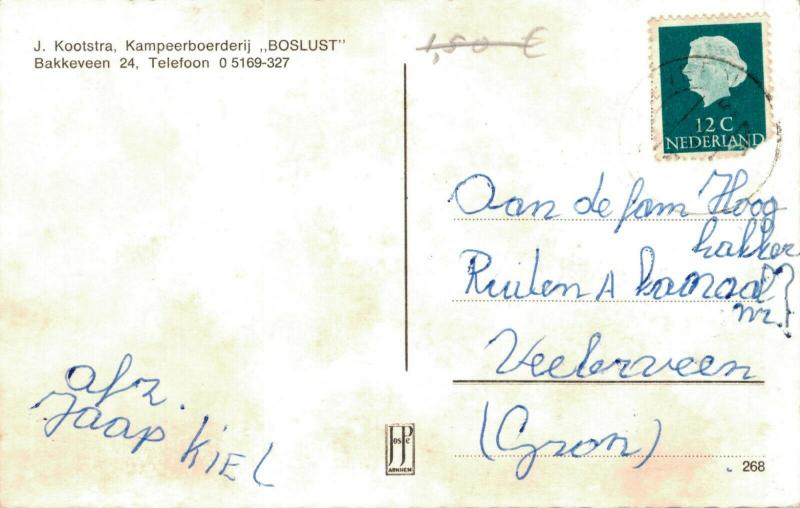 J. Kootstra, Kampeerboerderij ,,BOSLUST''
Bakkeveen 24, Telefoon 0 5169-327
1,50 €
12 C
NEDERLAND
Aan de fam Hoog
hakker
Ruiten A kanaal
nr. 7
Veelerveen
(Gron)
afz.
Jaap KIEL
JosPe
ARNHEM
268